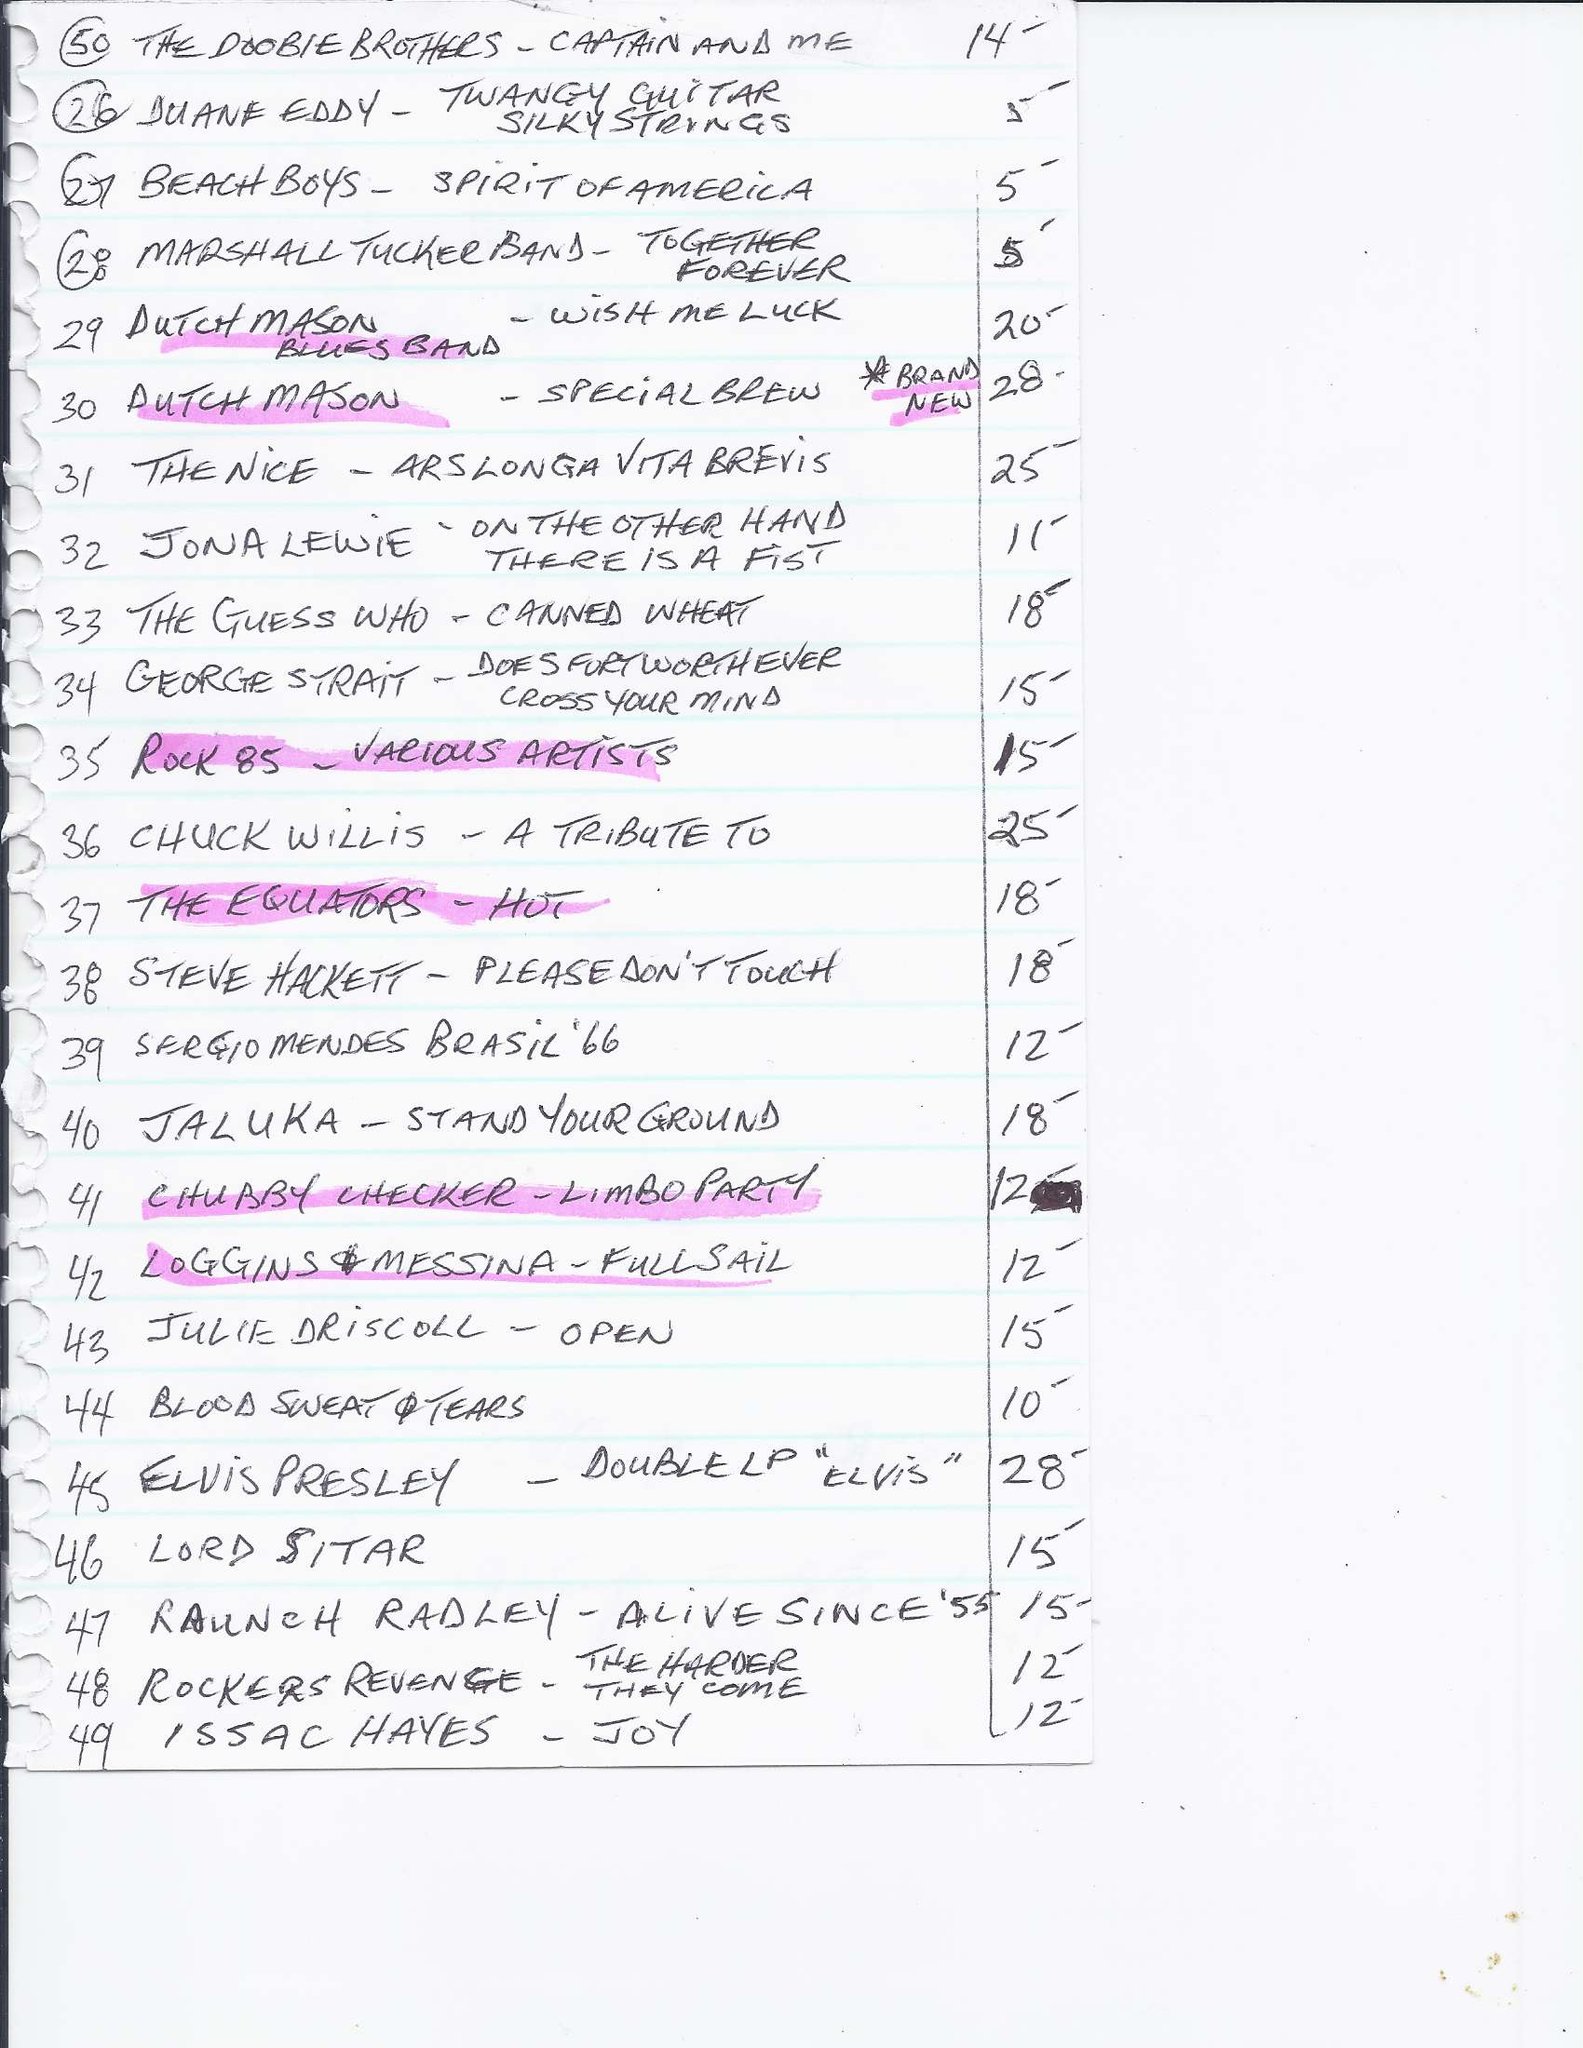 50 THE DOOBIE BROTHERS - CAPTAIN AND ME 14-
26 DUANE EDDY - TWANGY GUITAR 5-
SILKY STRINGS
27 BEACH BOYS - SPIRIT OF AMERICA 5-
28 MARSHALL TUCKER BAND - TOGETHER 5-
FOREVER
29 DUTCH MASON - WISH ME LUCK 20-
BLUES BAND
30 DUTCH MASON - SPECIAL BREW * BRAND 28-
NEW
31 THE NICE - ARS LONGA VITA BREVIS 25-
32 JONA LEWIE - ON THE OTHER HAND 11-
THERE IS A FIST
33 THE GUESS WHO - CANNED WHEAT 18-
34 GEORGE STRAIT - DOES FORT WORTH EVER 15-
CROSS YOUR MIND
35 ROCK 85 - VARIOUS ARTISTS 15-
36 CHUCK WILLIS - A TRIBUTE TO 25-
37 THE EQUATORS - HOT 18-
38 STEVE HACKETT - PLEASE DON'T TOUCH 18-
39 SERGIO MENDES BRASIL '66 12-
40 JALUKA - STAND YOUR GROUND 18-
41 CHUBBY CHECKER - LIMBO PARTY 12
42 LOGGINS & MESSINA - FULL SAIL 12-
43 JULIE DRISCOLL - OPEN 15-
44 BLOOD SWEAT & TEARS 10-
45 ELVIS PRESLEY - DOUBLE LP "ELVIS" 28-
46 LORD SITAR 15-
47 RAUNCH RADLEY - ALIVE SINCE '55 15-
48 ROCKERS REVENGE - THE HARDER 12-
THEY COME
49 ISSAC HAYES - JOY 12-